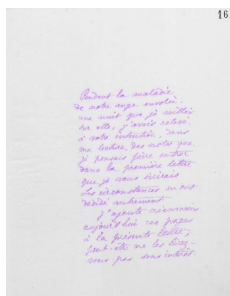 16
Pendant la maladie
de notre ange envolé,
une nuit que je veillais
sur elle, j'avais relevé
à votre intention, dans
ma lecture, des notes que
je pensais faire entrer
dans la première lettre
que je vous écrirais
Les circonstances en ont
décidé autrement.
J'ajoute néanmoins
aujourd'hui ces pages
à la présente lettre,
peut-être ne les lirez-
vous pas sans intérêt.